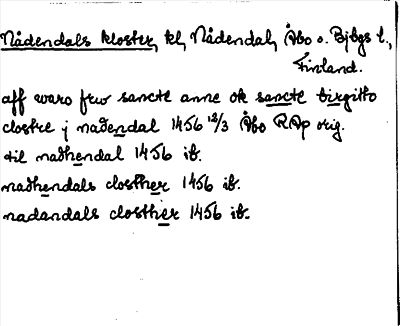 Nådendals kloster, kl, Nådendal, Åbo o. Bjbgs l.,
Finland.
aff waro frw sancte anne ok sancte birgitto
clostre j nadendal 1456 12/3 Åbo RAp orig.
til nadhendal 1456 ib.
nadhendals closther 1456 ib.
nadandals closther 1456 ib.